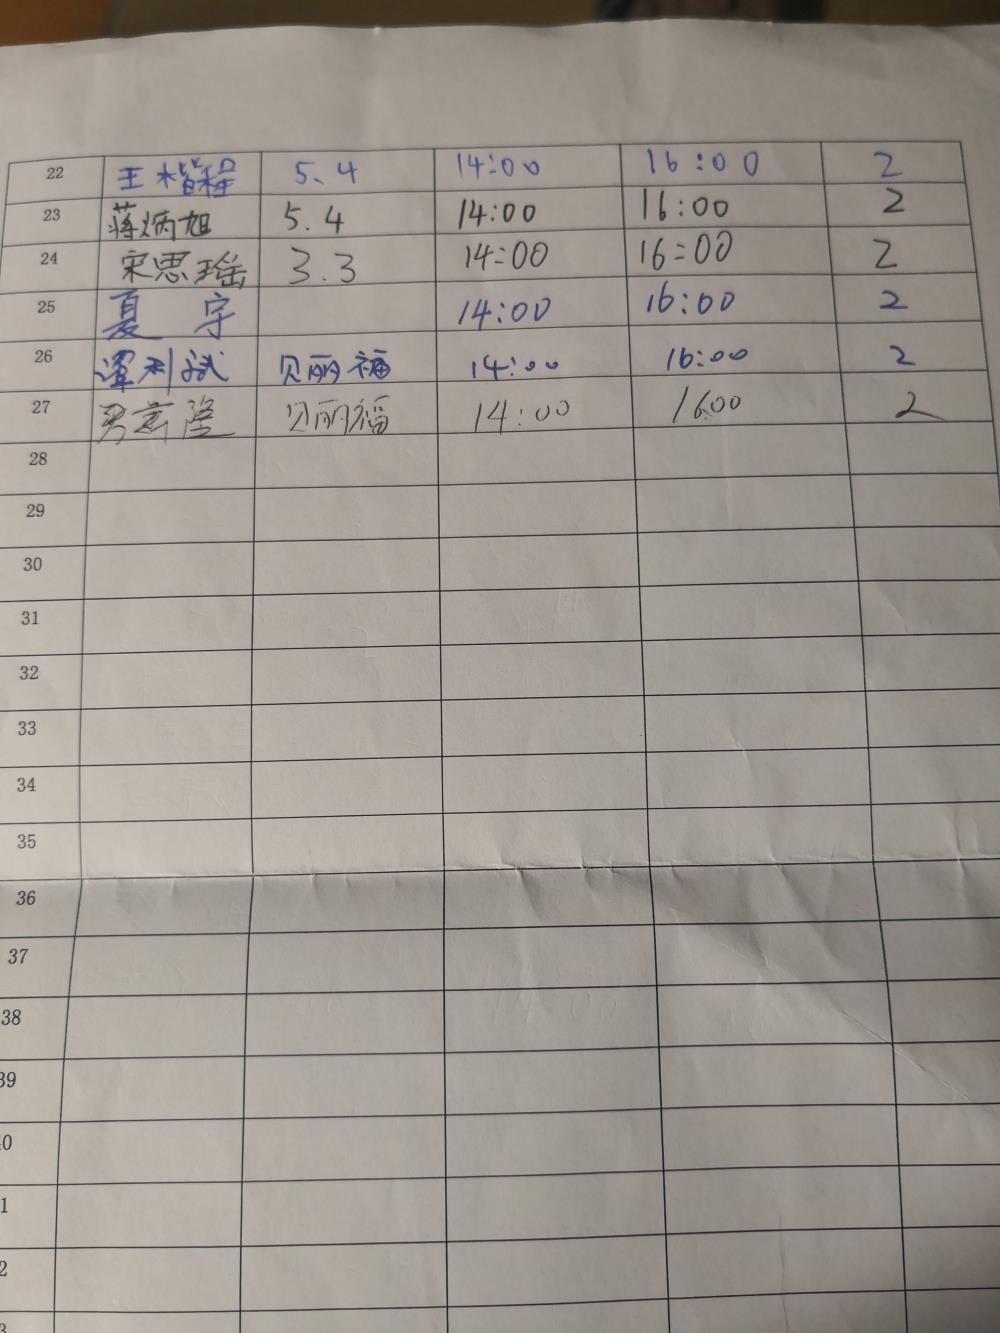 22 王楷程 5.4 14:00 16:00 2
23 蒋炳旭 5.4 14:00 16:00 2
24 宋思瑶 3.3 14:00 16:00 2
25 夏宇 14:00 16:00 2
26 贝丽福 14:00 16:00 2
27 贝丽福 14:00 16:00 2
28
29
30
31
32
33
34
35
36
37
38
39